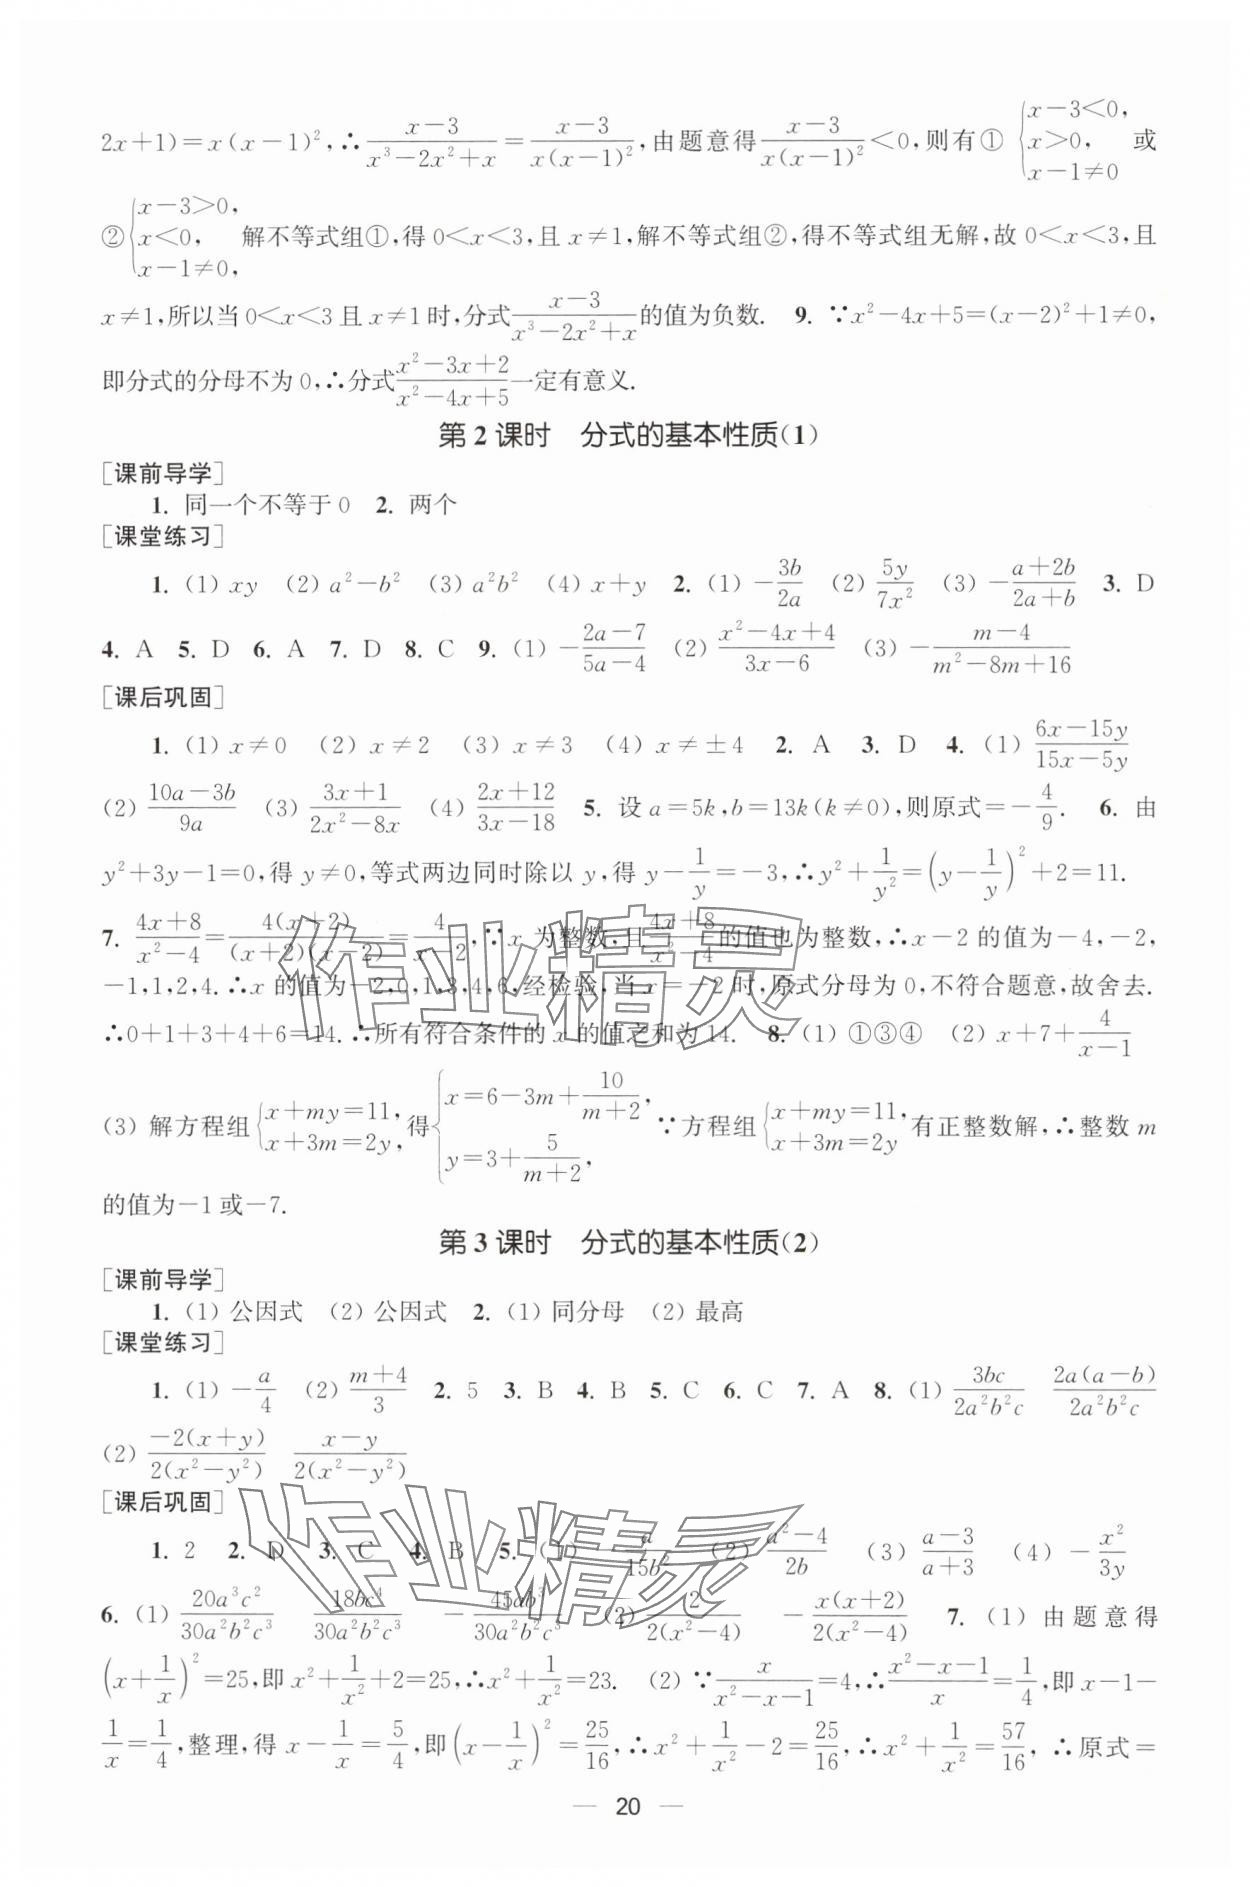 2x+1)=x(x-1)²,∴(x-3)/(x³-2x²+x)=(x-3)/(x(x-1)²),由题意得(x-3)/(x(x-1)²)<0,则有① {x-3<0, x>0, x-1≠0 或
②{x-3>0, x<0, x-1≠0, 解不等式组①,得0<x<3,且x≠1,解不等式组②,得不等式组无解,故0<x<3,且
x≠1,所以当0<x<3且x≠1时,分式(x-3)/(x³-2x²+x)的值为负数. 9. ∵x²-4x+5=(x-2)²+1≠0,
即分式的分母不为0,∴分式(x²-3x+2)/(x²-4x+5)一定有意义.
第2课时 分式的基本性质(1)
[课前导学]
1. 同一个不等于0 2. 两个
[课堂练习]
1. (1) xy (2) a²-b² (3) a²b² (4) x+y 2. (1) -3b/2a (2) 5y/7x² (3) -(a+2b)/(2a+b) 3. D
4. A 5. D 6. A 7. D 8. C 9. (1) -(2a-7)/(5a-4) (2) (x²-4x+4)/(3x-6) (3) -(m-4)/(m²-8m+16)
[课后巩固]
1. (1) x≠0 (2) x≠2 (3) x≠3 (4) x≠±4 2. A 3. D 4. (1) (6x-15y)/(15x-5y)
(2) (10a-3b)/9a (3) (3x+1)/(2x²-8x) (4) (2x+12)/(3x-18) 5. 设a=5k,b=13k(k≠0),则原式=-4/9. 6. 由
y²+3y-1=0,得y≠0,等式两边同时除以y,得y-1/y=-3,∴y²+1/y²=(y-1/y)²+2=11.
7. (4x+8)/(x²-4)=4(x+2)/((x+2)(x-2))=4/(x-2),∵x为整数,且(4x+8)/(x²-4)的值也为整数,∴x-2的值为-4,-2,
-1,1,2,4.∴x的值为-2,0,1,3,4,6,经检验,当x=-2时,原式分母为0,不符合题意,故舍去.
∴0+1+3+4+6=14.∴所有符合条件的x的值之和为14. 8. (1) ①③④ (2) x+7+4/(x-1)
(3) 解方程组{x+my=11, x+3m=2y, 得{x=6-3m+10/(m+2), y=3+5/(m+2), ∵方程组{x+my=11, x+3m=2y 有正整数解,∴整数m
的值为-1或-7.
第3课时 分式的基本性质(2)
[课前导学]
1. (1) 公因式 (2) 公因式 2. (1) 同分母 (2) 最高
[课堂练习]
1. (1) -a/4 (2) (m+4)/3 2. 5 3. B 4. B 5. C 6. C 7. A 8. (1) 3bc/2a²b²c 2a(a-b)/2a²b²c
(2) -2(x+y)/2(x²-y²) (x-y)/2(x²-y²)
[课后巩固]
1. 2 2. D 3. C 4. B 5. (1) a/15b² (2) (a²-4)/2b (3) (a-3)/(a+3) (4) -x²/3y
6. (1) 20a³c²/30a²b²c³ 18bc⁴/30a²b²c³ -45ab³/30a²b²c³ (2) 2/2(x²-4) -x(x+2)/2(x²-4) 7. (1) 由题意得
(x+1/x)²=25,即x²+1/x²+2=25,∴x²+1/x²=23. (2) ∵x/(x²-x-1)=4,∴(x²-x-1)/x=1/4,即x-1-
1/x=1/4,整理,得x-1/x=5/4,即(x-1/x)²=25/16,∴x²+1/x²-2=25/16,∴x²+1/x²=57/16,∴原式=
— 20 —
作业精灵
作业精灵